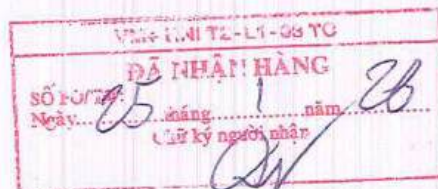 VM+ HNI T2-L1-08 TC
ĐÃ NHẬN HÀNG
SỐ
Ngày 25 tháng 1 năm 26
Chữ ký người nhận